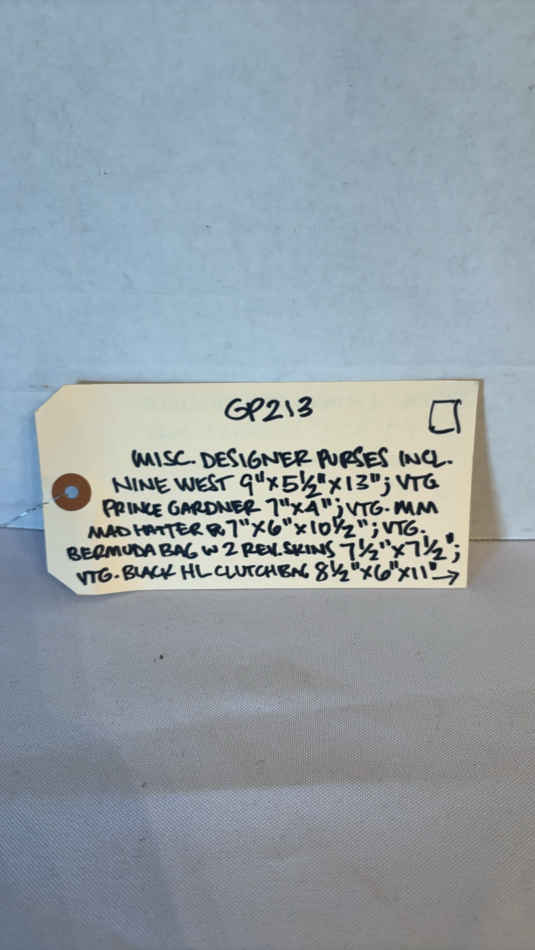 GP213
MISC. DESIGNER PURSES INCL.
NINE WEST 9"X5½"X13"; VTG
PRINCE GARDNER 7"X4"; VTG. MM
MAD HATTER 7"X6"X10½"; VTG.
BERMUDA BAG W 2 REV. SKINS 7½"X7½";
VTG. BLACK HL CLUTCH BAG 8½"X6"X11"→